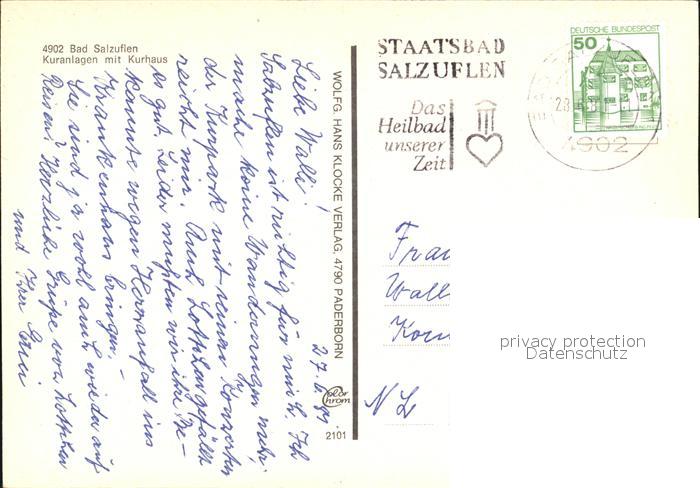 4902 Bad Salzuflen
Kuranlagen mit Kurhaus
27.6.81.
Liebe Walli!
Salzuflen ist richtig für mich. Ich
mache keine Wanderungen mehr,
der Kurpark mit seinen Konzerten
reicht mir. Auch Lottchen gefällt
es gut. Leider mußten wir ihre Be-
kannte wegen Herzanfall ins
Krankenhaus bringen. -
Sie sind ja wohl auch wieder auf
Reisen? Herzliche Grüße von Lottchen
und Ihrer Erni
WOLFG. HANS KLOCKE VERLAG, 4790 PADERBORN
Color
chrom
2101
STAATSBAD
SALZUFLEN
Das
Heilbad
unserer
Zeit
DEUTSCHE BUNDESPOST
50
4902
Frau
Wall
NL
privacy protection
Datenschutz